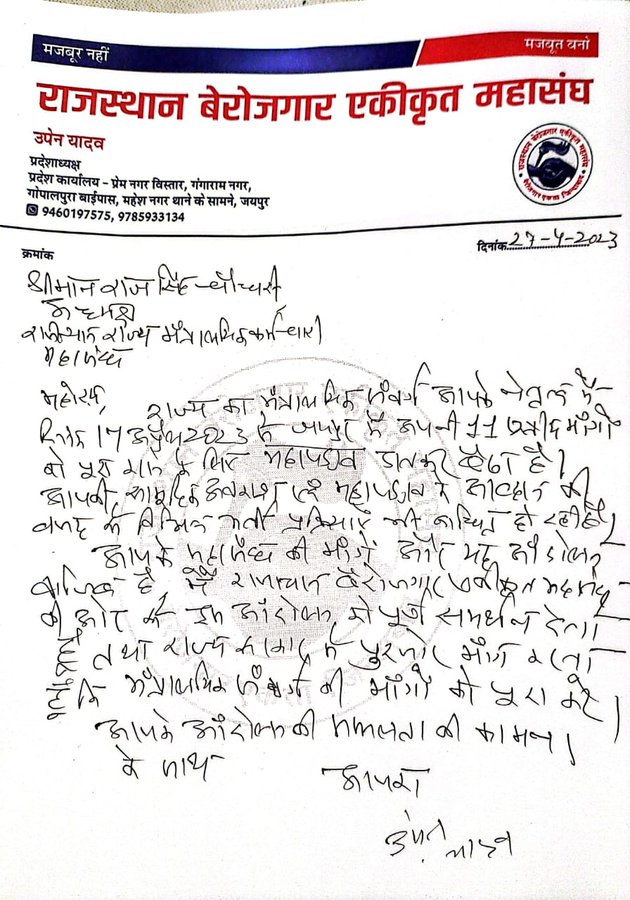 मजबूर नहीं
मजबूत बनो
राजस्थान बेरोजगार एकीकृत महासंघ
उपेन यादव
प्रदेशाध्यक्ष
प्रदेश कार्यालय – प्रेम नगर विस्तार, गंगाराम नगर,
गोपालपुरा बाईपास, महेश नगर थाने के सामने, जयपुर
9460197575, 9785933134
राजस्थान बेरोजगार एकीकृत महासंघ
बेरोजगार एकता जिन्दाबाद
क्रमांक
दिनांक 27-4-2023
श्रीमान राज सिंह चौधरी
राजस्थान राज्य मंत्रालयिक कर्मचारी
महासंघ
महोदय,
राज्य का मंत्रालयिक संवर्ग आपके नेतृत्व में
दिनांक 17 अप्रैल 2023 से जयपुर में अपनी 11 सूत्री मांगों
को पूरा कराने के लिए महापड़ाव डालकर बैठा है।
आपकी सामूहिक अवकाश एवं महापड़ाव के आव्हान की
वजह से विभिन्न भर्ती प्रक्रियाएं भी बाधित हो रही हैं।
आपके महासंघ की मांगें और यह आंदोलन
वाजिब है, मैं राजस्थान बेरोजगार एकीकृत महासंघ
की ओर से इस आंदोलन को पूर्ण समर्थन देता
हूँ तथा राज्य सरकार से पुरजोर मांग करता
हूँ कि मंत्रालयिक संवर्ग की मांगों को पूरा करें।
आपके आंदोलन की सफलता की कामना
के साथ
आपका
उपेन यादव